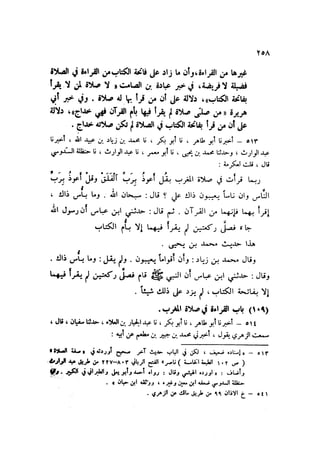 ٢٥٨
غيرها من القراءة، وأن ما زاد على فاتحة الكتاب من القراءة في الصلاة
فضيلة لا فريضة، في خبر عبادة بن الصامت « لا صلاة لمن لا يقرأ
بفاتحة الكتاب»، دلالة على أن من قرأ بها له صلاة . وفي خبر أبي
هريرة « من صلى صلاة لم يقرأ فيها بأم القرآن فهي خداج»، دلالة
على أن من قرأ بفاتحة الكتاب في الصلاة لم تكن صلاته خداج .
٥١٣ – أخبرنا أبو طاهر ، نا أبو بكر ، نا محمد بن زياد بن عبيد الله ، أخبرنا
عبد الوارث ، وحدثنا محمد بن يحيى ، نا أبو معمر ، نا عبد الوارث ، نا حنظلة السدوسي
قال ، قلت لعكرمة :
ربما قرأت في صلاة المغرب بقُل أَعوذُ بِرَبِّ الْفَلَقِ وقُلْ أَعوذُ بِرَبِّ
النَّاسِ وإن ناساً يعيبون ذاك علي ؟ قال : سبحان الله . وما بأس ذاك ،
اقرأ بهما فإنهما من القرآن . ثم قال : حدثني ابن عباس أن رسول الله
جاء فصلى ركعتين لم يقرأ فيهما إلا بأم الكتاب
هذا حديث محمد بن يحيى .
وقال محمد بن زياد : وأن أقواماً يعيبون . ولم يقل : وما بأس ذاك .
وقال : حدثني ابن عباس أن النبي ﷺ قام فصلى ركعتين لم يقرأ فيهما
إلا بفاتحة الكتاب ، لم يزد على ذلك شيئاً .
(١٠٩) باب القراءة في صلاة المغرب .
٥١٤ – أخبرنا أبو طاهر ، نا أبو بكر ، نا عبد الجبار بن العلاء ، حدثنا سفيان ، قال ،
سمعت الزهري يقول ، أخبرني محمد بن جبير بن مطعم عن أبيه :
٥١٣ – « إسناده ضعيف ، لكن في الباب حديث آخر صحيح أوردته في « صفة الصلاة
( ص ١٠٢ الطبعة الخامسة ) ناصر » الفتح الرباني ٣ : من طريق عبد الوارث
وأضاف : « أورده الهيثمي وقال : رواه أحمد وأبو يعلى والطبراني في الكبير ، وفيه
حنظلة السدوسي ضعفه ابن معين وغيره ، ووثقه ابن حبان » .
خ الأذان ٩٩ من طريق مالك عن الزهري .